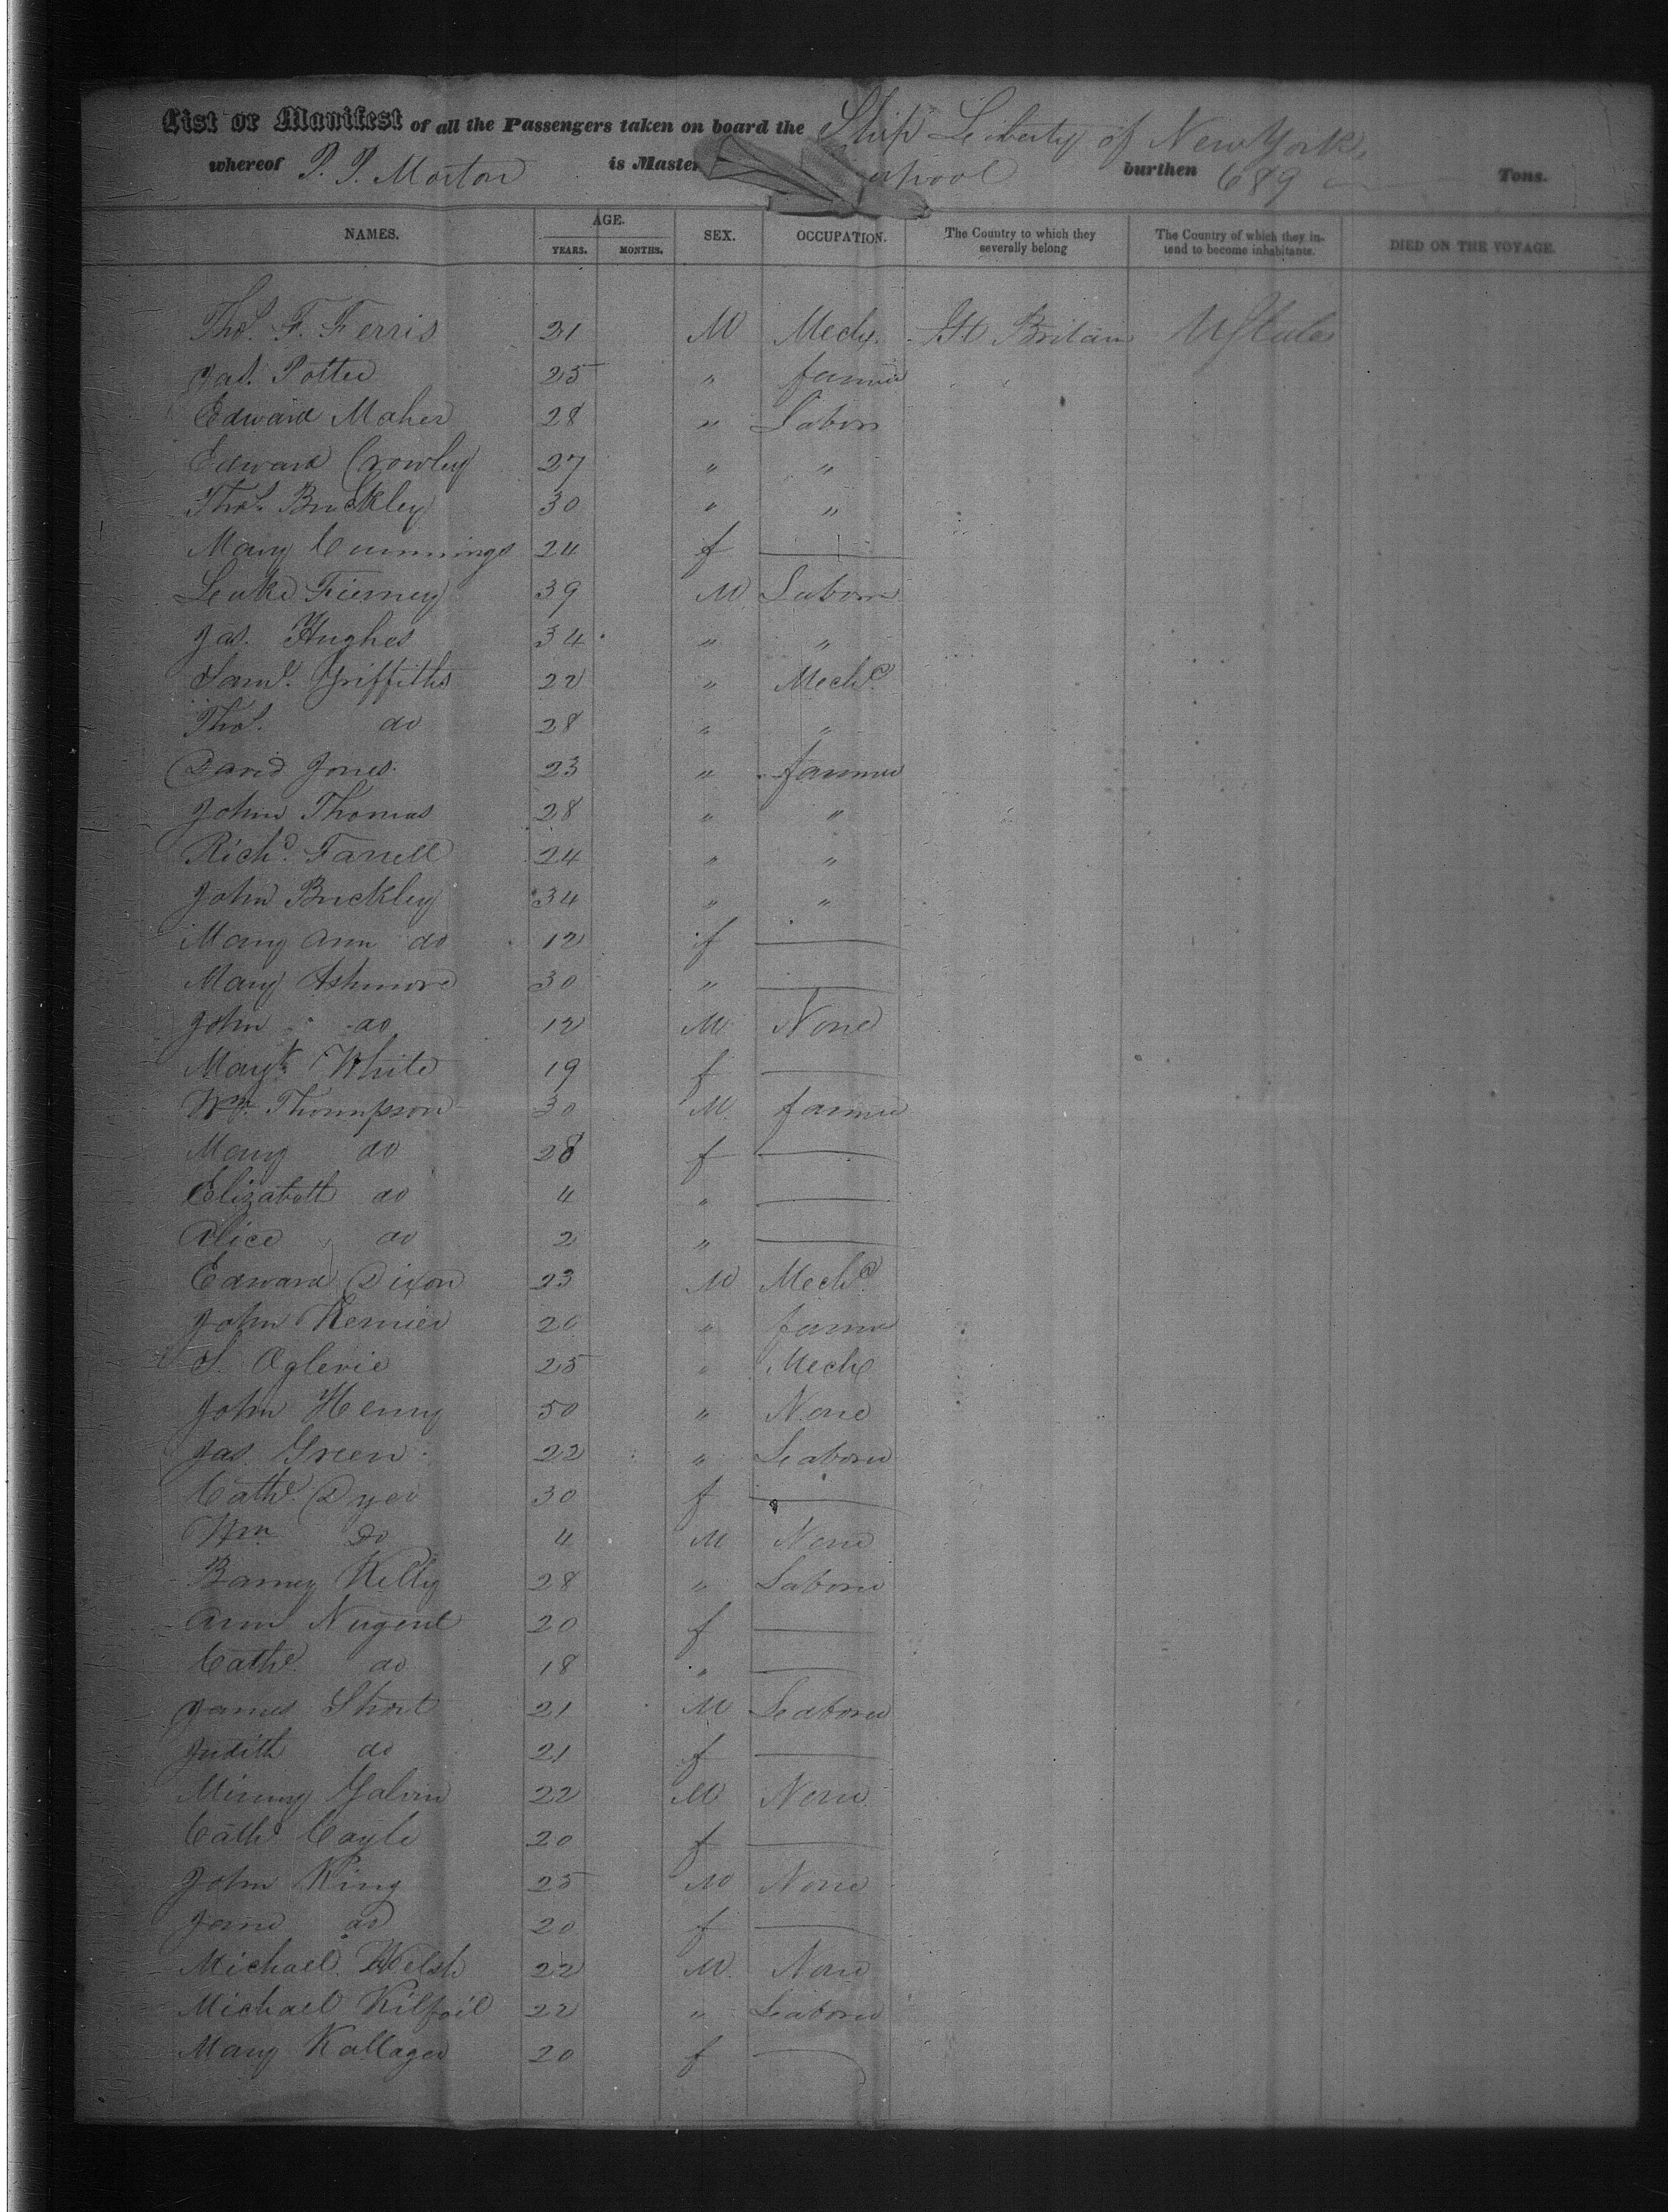 List or Manifest of all the Passengers taken on board the Ship Liberty of New York,
whereof P. P. Morton is Master burthen 689 Tons.
NAMES. AGE. YEARS. MONTHS. SEX. OCCUPATION. The Country to which they severally belong The Country of which they intend to become inhabitants. DIED ON THE VOYAGE.
Thos. F. Ferris 21 M Mech. Gt Britain U States
Jas. Potter 25 " farmer
Edward Maher 28 " Labor
Edward Crowley 27 " "
Thos. Buckley 30 " "
Mary Cummings 24 f —
Luke Tierney 39 M Labor
Jas. Hughes 34 " "
Saml. Griffiths 22 " Mechc
Thos. do 28 " "
David Jones 23 " farmer
John Thomas 28 " "
Richd. Farrell 24 " "
John Buckley 34 " "
Mary Ann do 12 f —
Mary Ashmore 30 " —
John do 12 M None
Margt. White 19 f —
Wm. Thompson 30 M farmer
Mary do 28 f —
Elizabeth do 4 " —
Alice do 2 " —
Edward Dixon 23 M Mechc
John 20 " farmer
S. Oglevie 25 " Mech
John Henry 50 " None
Jas. Green 22 " Laborer
Cathe. Dyer 30 f —
Wm do 4 M None
Barney Kelly 28 " Laborer
Ann Nugent 20 f —
Cathe. do 18 " —
James Short 21 M Laborer
Judith do 21 f —
Galvin 22 M None
Cathe. Coyle 20 f —
John King 25 M None
Jane do 20 f —
Michael Welsh 22 M None
Michael Kilfoil 22 " Laborer
Mary Kallager 20 f —